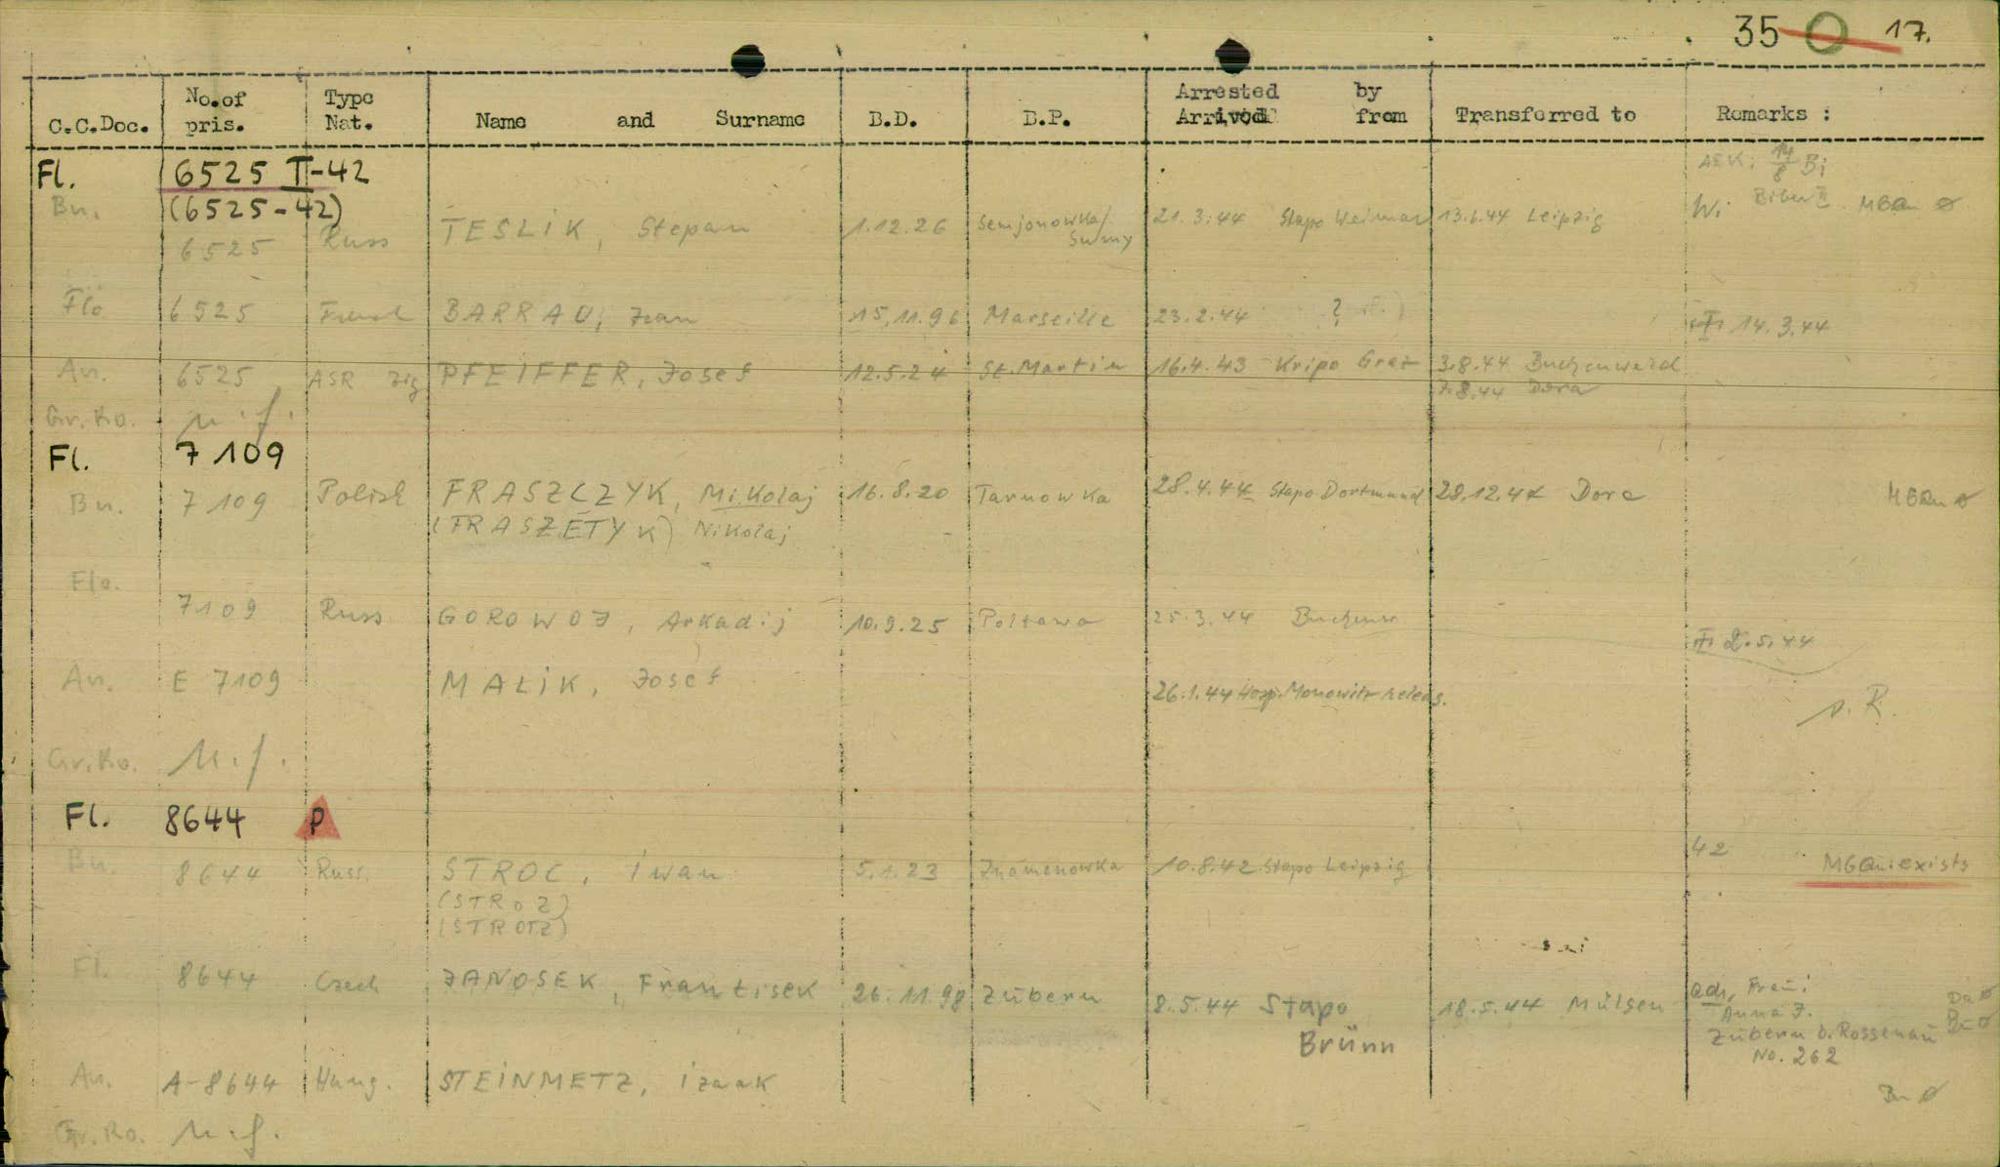 35 17.
C.C.Doc. No.of pris. Type Nat. Name and Surname B.D. B.P. Arrested by Arrived from Transferred to Remarks :
Fl. 6525 II-42 AEK: 14/8 Bi
(6525-42)
Bn. 6525 Russ TESLIK, Stepan 1.12.26 Semjonowka/ Sumy 21.3.44 Stapo Weimar 13.6.44 Leipzig Wi
Flo 6525 French BARRAU, Jean 15.11.96 Marseille 23.2.44 ? 14.3.44
An. 6525 ASR Zig PFEIFFER, Josef 12.5.24 St. Martin 16.4.43 Kripo Graz 3.8.44 Buchenwald
7.8.44 Dora
Gr.Ro. n.f.
Fl. 7109
Bn. 7109 Polish FRASZCZYK, Mikolaj 16.8.20 Tarnowka 28.4.44 Stapo Dortmund 28.12.44 Dora
(FRASZETYK) Nikolaj
Flo.
7109 Russ GOROWOJ, Arkadij 10.9.25 Poltawa 25.3.44 Buchenw 2.5.44
An. E 7109 MALIK, Josef 26.1.44 Hosp. Monowitz releas.
s. R.
Gr.Ro. n.f.
Fl. 8644 P
Bu. 8644 Russ. STROC, Iwan 5.1.23 Znamenowka 10.8.42 Stapo Leipzig 42 exists
(STROZ)
(STROTZ)
Fl. 8644 Czech JANOSEK, Frantisek 26.11.98 Zubern 8.5.44 Stapo Brünn 18.5.44 Mülsen adr. Frau:
Anna J.
Zubern b. Rossenau
No. 262
An. A-8644 Hung. STEINMETZ, Izaak
Gr.Ro. n.f.